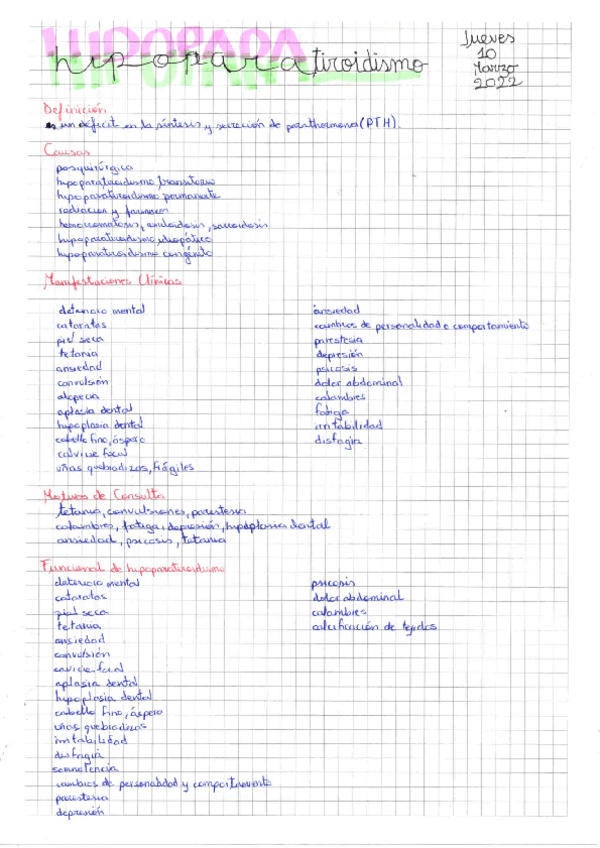 HIPOPARA
hipoparatiroidismo
Jueves
10
Marzo
2022
Definición
es un déficit en la síntesis y secreción de parathormona (PTH).
Causas
posquirúrgica
hipoparatiroidismo transitorio
hipoparatiroidismo permanente
radiación y fármacos
hemocromatosis, amiloidosis, sarcoidosis
hipoparatiroidismo idiopático
hipoparatiroidismo congénito
Manifestaciones Clínicas
deterioro mental
cataratas
piel seca
tetania
ansiedad
convulsión
alopecia
aplasia dental
hipoplasia dental
cabello fino, áspero
calvicie focal
uñas quebradizas, frágiles
ansiedad
cambios de personalidad o comportamiento
parestesia
depresión
psicosis
dolor abdominal
calambres
fatiga
irritabilidad
disfagia
Motivos de Consulta
tetania, convulsiones, parestesia
calambres, fatiga, depresión, hipoplasia dental
ansiedad, psicosis, tetania
Funcional de hipoparatiroidismo
deterioro mental
cataratas
piel seca
tetania
ansiedad
convulsión
calvicie focal
aplasia dental
hipoplasia dental
cabello fino, áspero
uñas quebradizas
irritabilidad
disfagia
somnolencia
cambios de personalidad y comportamiento
parestesia
depresión
psicosis
dolor abdominal
calambres
calcificación de tejidos